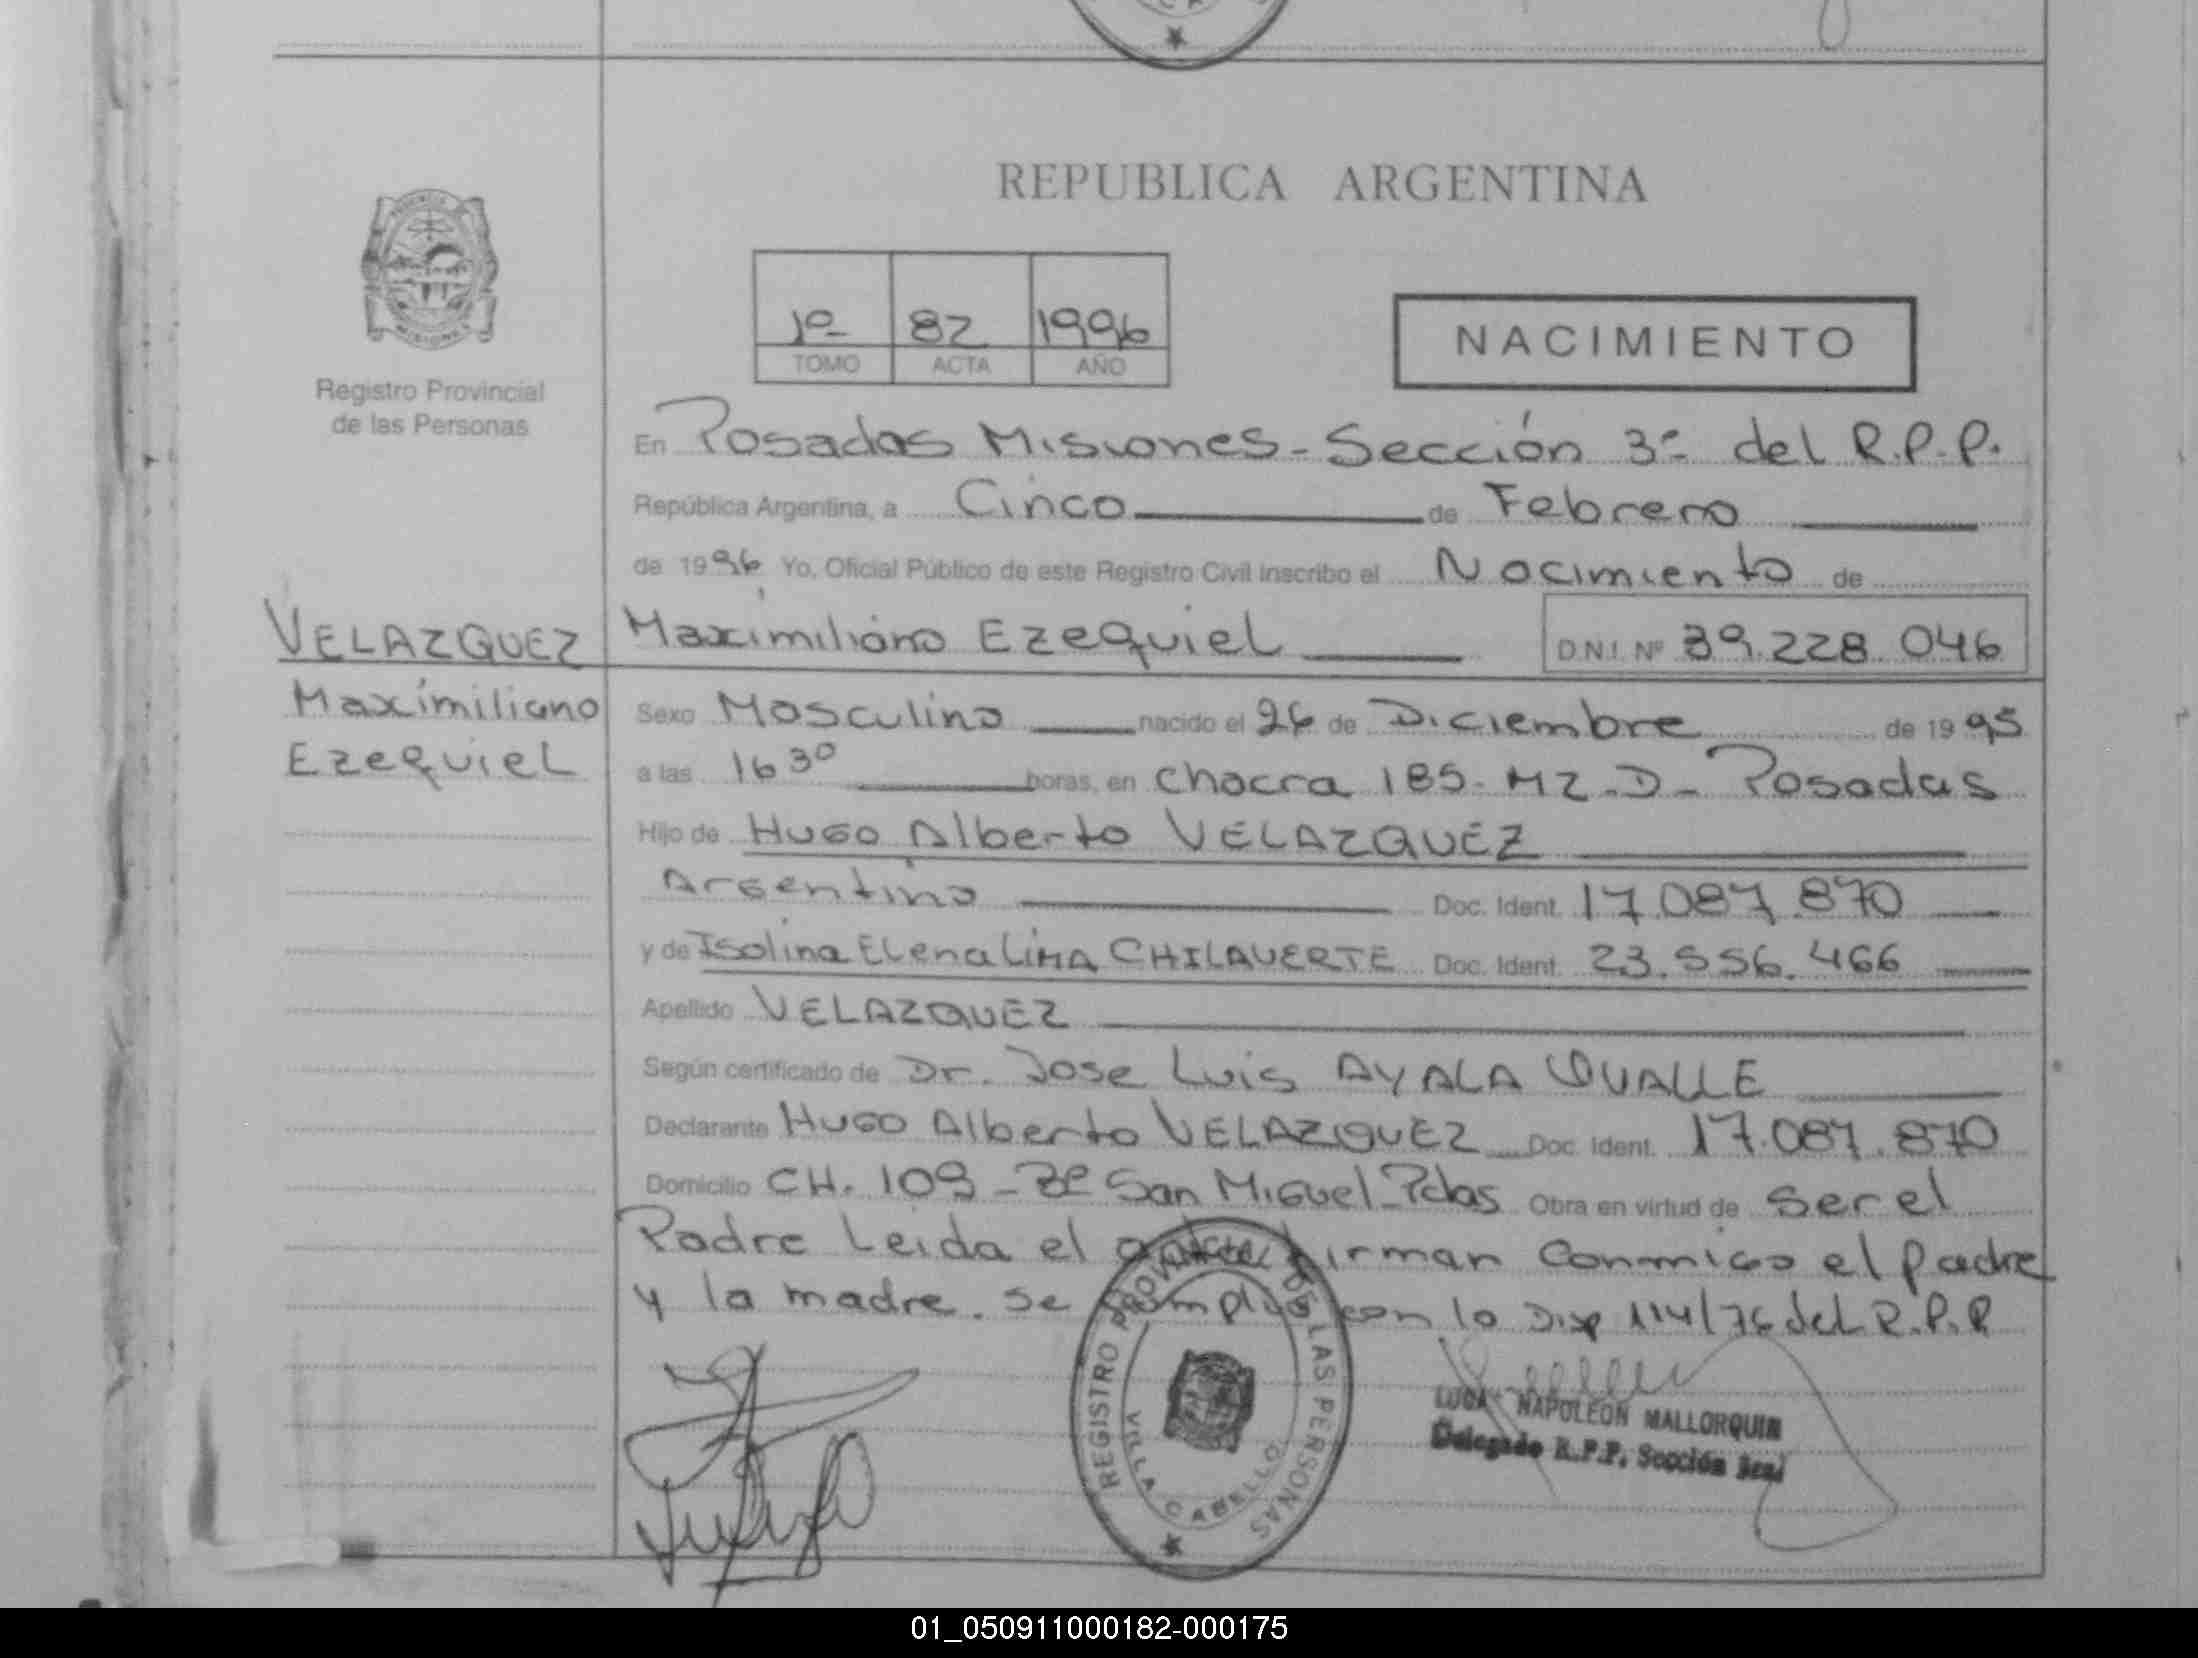 REPUBLICA ARGENTINA
1º 82 1996
TOMO ACTA AÑO
NACIMIENTO
Registro Provincial
de las Personas
En Posadas Misiones - Sección 3º del R.P.P.
República Argentina, a Cinco de Febrero
de 1996 Yo, Oficial Público de este Registro Civil inscribo el Nacimiento de
VELAZQUEZ Maximiliano Ezequiel D.N.I. Nº 39.228.046
Maximiliano
Ezequiel
Sexo Masculino nacido el 26 de Diciembre de 1995
a las 16 30 horas, en Chacra 185 - MZ - D - Posadas
Hijo de Hugo Alberto VELAZQUEZ
Argentino Doc. Ident. 17.087.870
y de Isolina Elena LIMA CHILAVERTE Doc. Ident. 23.556.466
Apellido VELAZQUEZ
Según certificado de Dr. Jose Luis AYALA OVALLE
Declarante Hugo Alberto VELAZQUEZ Doc. Ident. 17.087.870
Domicilio CH. 109 - Bº San Miguel - Pdas Obra en virtud de ser el
Padre Leida el acta firman conmigo el padre
y la madre. se cumplio con la Disp 114/76 del R.P.P
REGISTRO PROVINCIAL DE LAS PERSONAS
VILLA CABELLO
NAPOLEON MALLORQUIN
Delegado R.P.P. Sección 3era
01_050911000182-000175